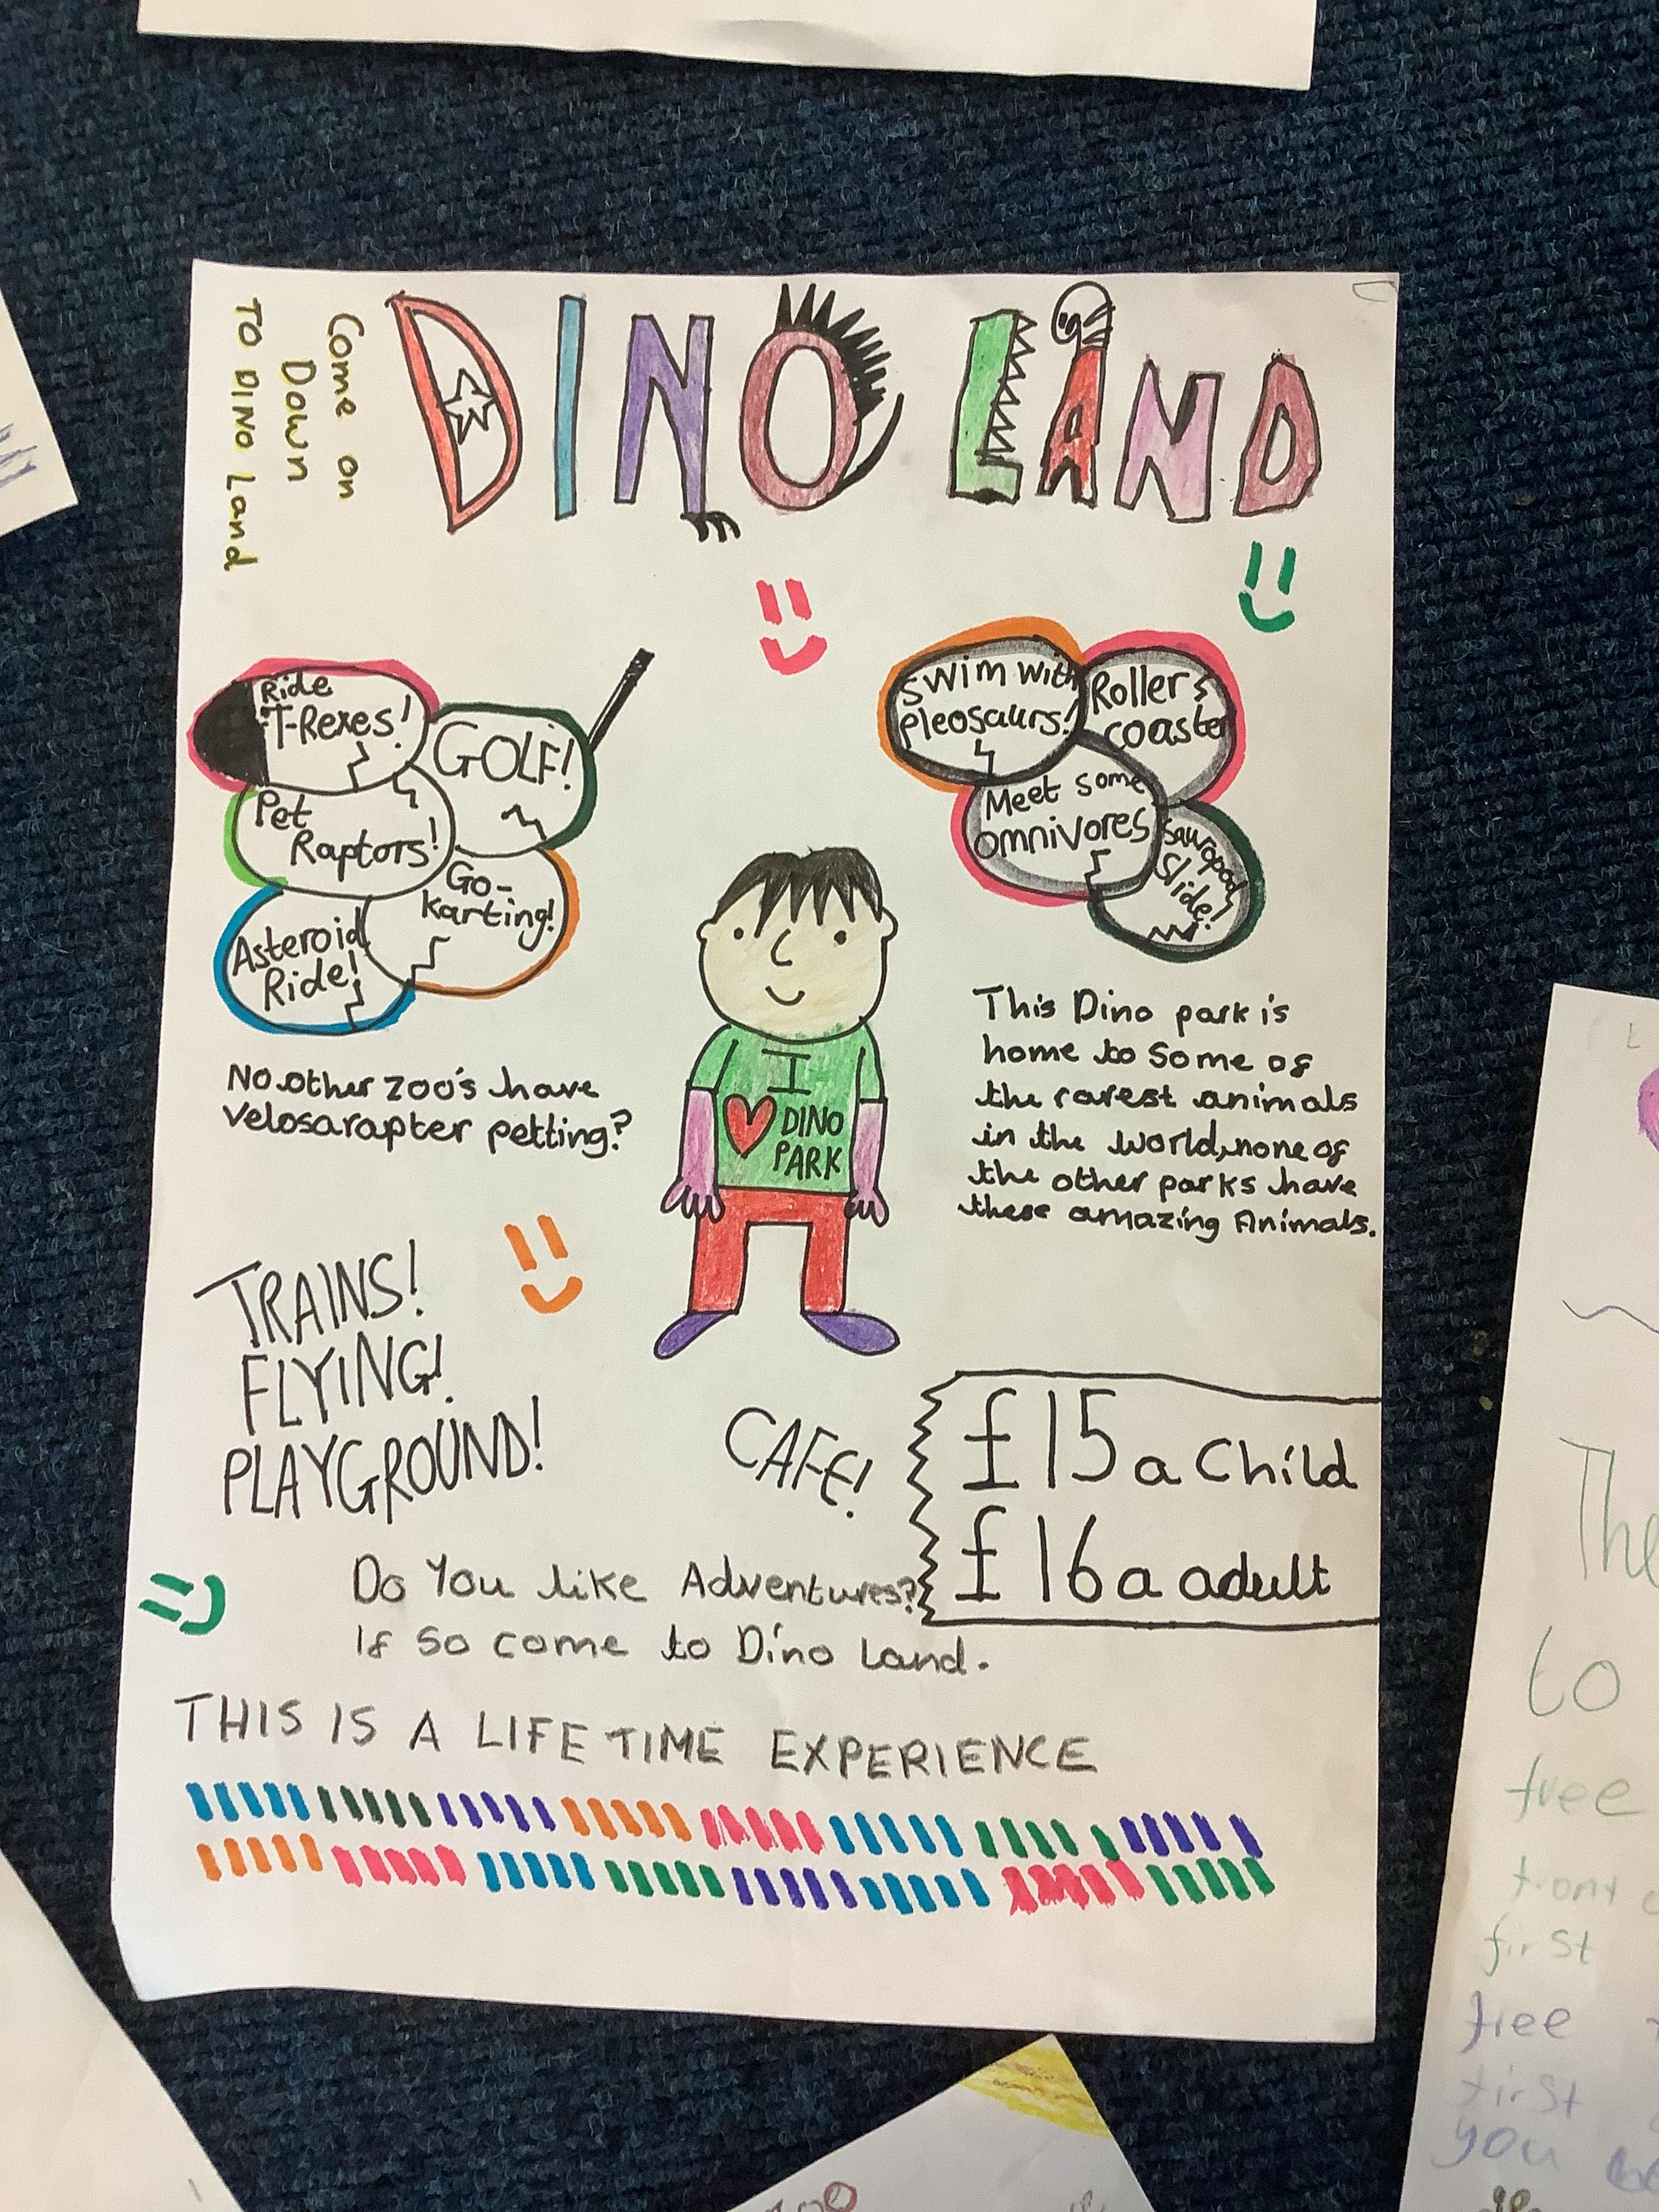 Come on
Down
TO DINO Land
DINO LAND
Ride
T-Rexes!
GOLF!
Pet
Raptors!
Go-
karting!
Asteroid
Ride!
Swim with
pleosaurs!
Roller
coaster
Meet some
omnivores
Sauropod
Slide!
No other zoo's have
velosarapter petting?
I
DINO
PARK
This Dino park is
home to some of
the rarest animals
in the world, none of
the other parks have
these amazing Animals.
TRAINS!
FLYING!
PLAYGROUND!
CAFE!
£15 a child
£16 a adult
Do You like Adventures?
If so come to Dino Land.
THIS IS A LIFE TIME EXPERIENCE
The
to
free
front
first
free
first
you